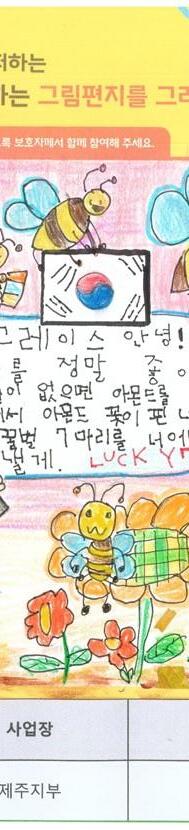 저하는
하는 그림편지를 그리
록 보호자께서 함께 참여해 주세요.
그레이스 안녕!
를 정말 좋아
이 없으면 아몬드를
에서 아몬드 꽃이 핀 나
꿀벌 7마리를 너어
낼게. LUCKY7
사업장
제주지부